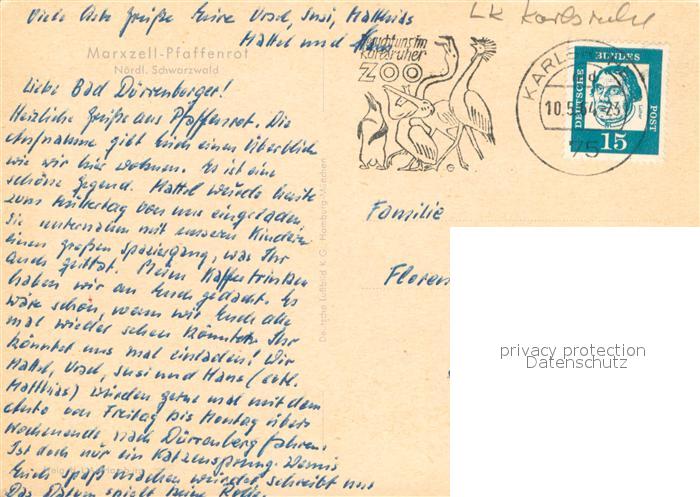 Viele liebe Grüße Eure Ursel, Susi, Matthias
Mattel und Hans
LK Karlsruhe
Marxzell-Pfaffenrot
Nördl. Schwarzwald
Besucht uns im
Karlsruher
ZOO
KARLS
10.5.64-23
75
DEUTSCHE BUNDESPOST
15
Liebe Bad Dürrenberger!
Herzliche Grüße aus Pfaffenrot. Die
Aufnahme gibt Euch einen Überblick
wie wir hier wohnen. Es ist eine
schöne Gegend. Mattel wurde heute
zum Muttertag von uns eingeladen
Sie unternahm mit unseren Kindern
einen großen Spaziergang, was Ihr
auch gefällt. Beim Kaffeetrinken
haben wir an Euch gedacht. Es
wäre schön, wenn wir Euch alle
mal wieder sehen könnten. Ihr
könntet uns mal einladen! Wir
Mattel, Ursel, Susi und Hans (evtl.
Matthias) würden gerne mal mit dem
Auto von Freitag bis Montag übers
Wochenende, nach Dürrenberg fahren.
Ist doch nur ein Katzensprung. Wenns
Euch spaß machen würde, schreibt uns
Das Datum spielt keine Rolle.
Deutsche Luftbild K. G. Hamburg-München
Familie
Floren
privacy protection
Datenschutz